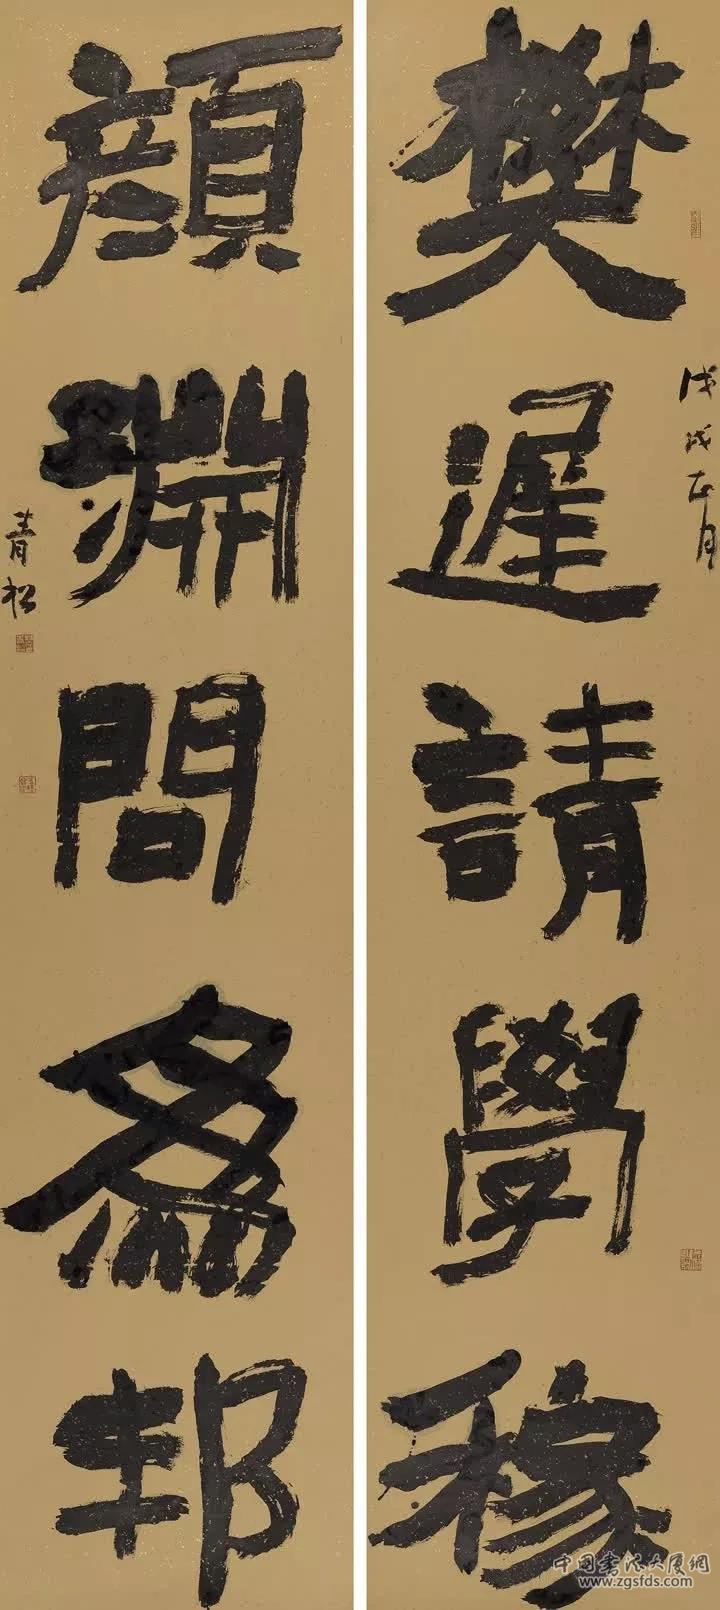 樊遲請學稼
戊戌正月
顏淵問為邦
青松
中国书法大厦網
www.zgsfds.com